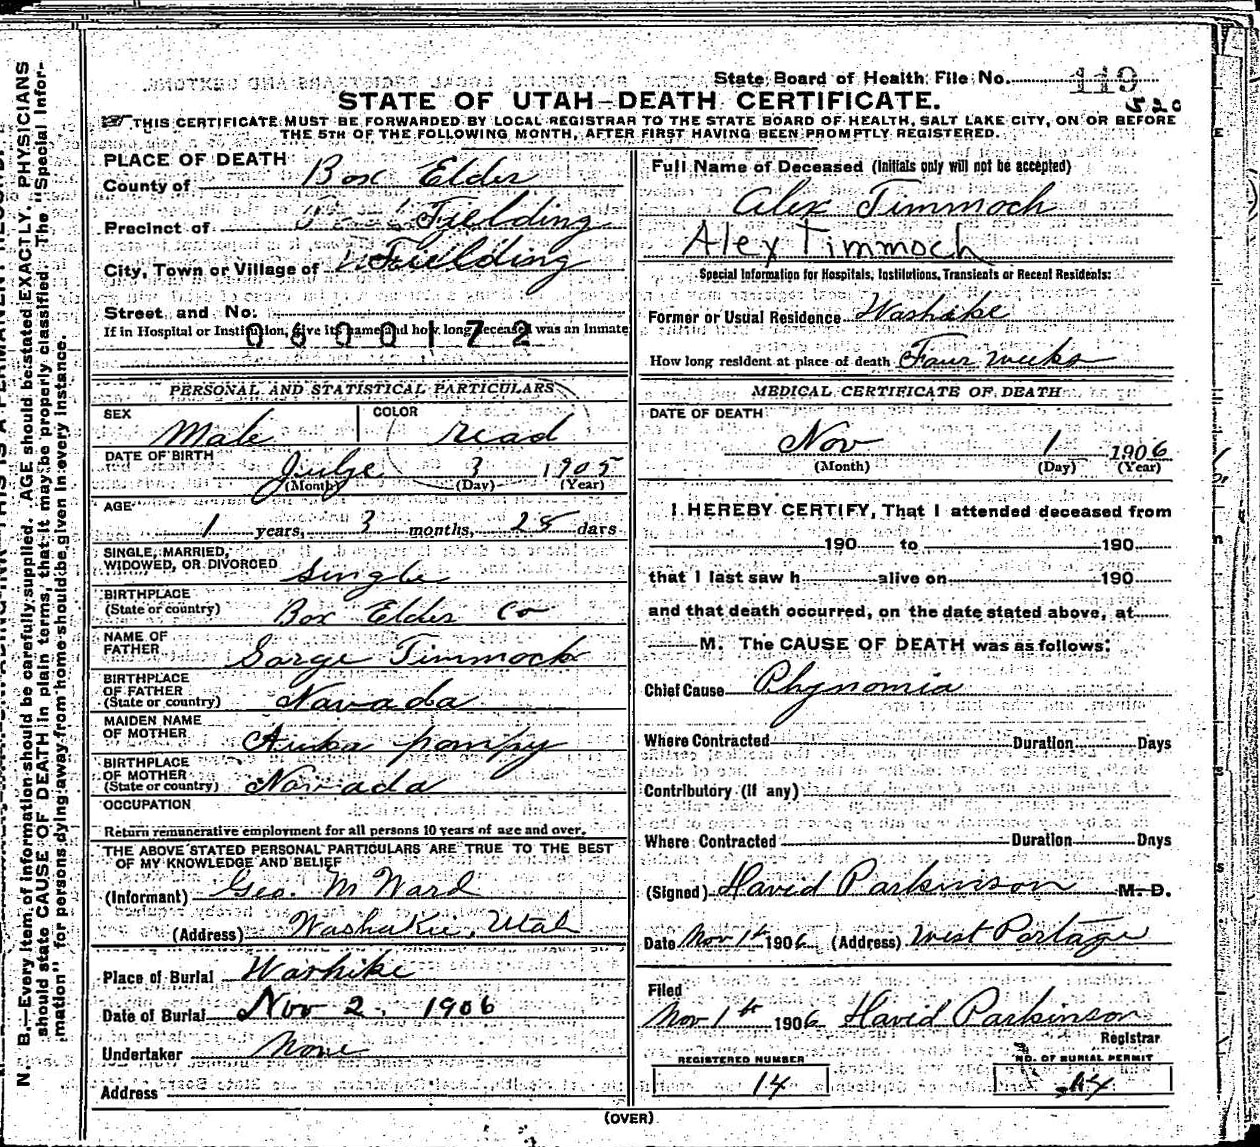 State Board of Health File No. 119
520
STATE OF UTAH—DEATH CERTIFICATE.
THIS CERTIFICATE MUST BE FORWARDED BY LOCAL REGISTRAR TO THE STATE BOARD OF HEALTH, SALT LAKE CITY, ON OR BEFORE
THE 5TH OF THE FOLLOWING MONTH, AFTER FIRST HAVING BEEN PROMPTLY REGISTERED.
PLACE OF DEATH
County of Box Elder
Precinct of Fielding
City, Town or Village of Fielding
Street and No.
If in Hospital or Institution, give its name and how long deceased was an inmate
0600172
PERSONAL AND STATISTICAL PARTICULARS
SEX Male COLOR read
DATE OF BIRTH July 3 1905
(Month) (Day) (Year)
AGE
1 years, 3 months, 28 days
SINGLE, MARRIED,
WIDOWED, OR DIVORCED single
BIRTHPLACE
(State or country) Box Elder Co
NAME OF
FATHER Sarge Timmock
BIRTHPLACE
OF FATHER
(State or country) Navada
MAIDEN NAME
OF MOTHER pompy
BIRTHPLACE
OF MOTHER
(State or country) Navada
OCCUPATION
Return remunerative employment for all persons 10 years of age and over.
THE ABOVE STATED PERSONAL PARTICULARS ARE TRUE TO THE BEST
OF MY KNOWLEDGE AND BELIEF
(Informant) Geo. M Ward
(Address) Washakie, Utah
Place of Burial Washike
Date of Burial Nov 2. 1906
Undertaker None
Address
Full Name of Deceased (Initials only will not be accepted)
Alex Timmoch
Alex Timmoch
Special Information for Hospitals, Institutions, Transients or Recent Residents:
Former or Usual Residence Washike
How long resident at place of death Four weeks
MEDICAL CERTIFICATE OF DEATH
DATE OF DEATH
Nov 1 1906
(Month) (Day) (Year)
I HEREBY CERTIFY, That I attended deceased from
190 to 190
that I last saw h alive on 190
and that death occurred, on the date stated above, at
M. The CAUSE OF DEATH was as follows:
Chief Cause Phynomia
Where Contracted Duration Days
Contributory (If any)
Where Contracted Duration Days
(Signed) David Parkinson M. D.
Date Nov 1st 1906 (Address) West Portage
Filed
Nov 1st 1906 David Parkinson
Registrar
REGISTERED NUMBER
14
NO. OF BURIAL PERMIT
14
(OVER)
N. B.—Every item of information should be carefully supplied. AGE should be stated EXACTLY. PHYSICIANS
should state CAUSE OF DEATH in plain terms, that it may be properly classified. The "Special Infor-
mation" for persons dying away from home should be given in every instance.